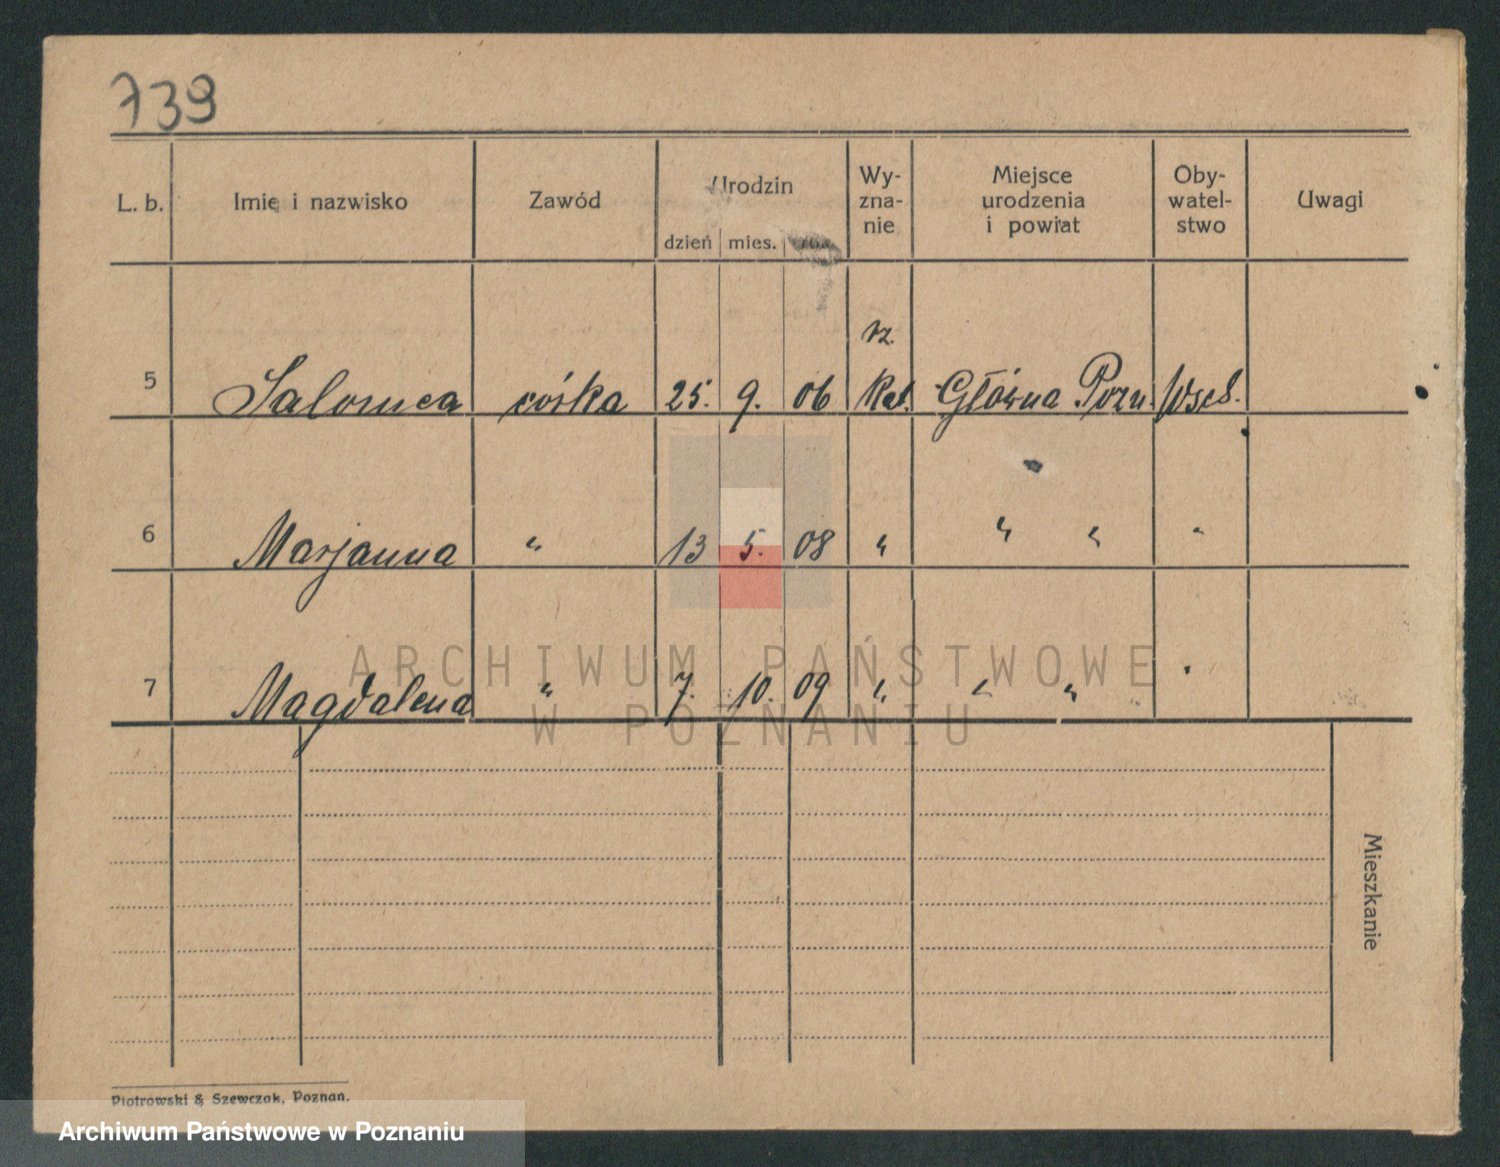 739
L. b. Imię i nazwisko Zawód Urodzin dzień mies. Wy-zna-nie Miejsce urodzenia i powiat Oby-watel-stwo Uwagi
5 Salomea córka 25. 9. 06 rz. Kat. Główna Pozn.
6 Marjanna " 13 5. 08 " " " "
7 Magdalena " 7. 10. 09 " " " "
ARCHIWUM PAŃSTWOWE
W POZNANIU
Mieszkanie
Piotrowski & Szewczak, Poznań.
Archiwum Państwowe w Poznaniu